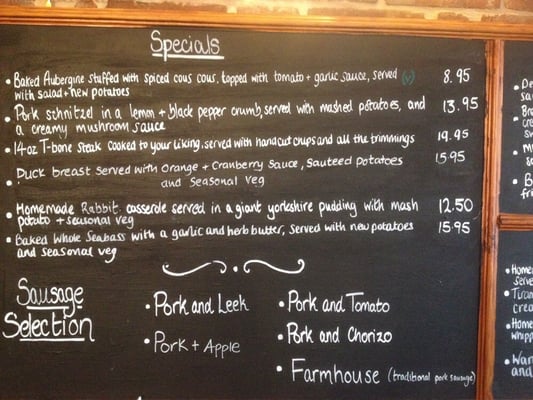 Specials
• Baked Aubergine stuffed with spiced cous cous, topped with tomato + garlic sauce, served (v) 8.95
with salad + new potatoes
• Pork schnitzel in a lemon + black pepper crumb, served with mashed potatoes, and 13.95
a creamy mushroom sauce
• 14oz T-bone steak cooked to your liking, served with handcut chips and all the trimmings 19.95
• Duck breast served with orange + Cranberry Sauce, Sauteed potatoes 15.95
and seasonal veg
• Homemade Rabbit casserole served in a giant yorkshire pudding with mash 12.50
potato + seasonal veg
• Baked Whole Seabass with a garlic and herb butter, served with new potatoes 15.95
and seasonal veg
Sausage
Selection
• Pork and Leek
• Pork + Apple
• Pork and Tomato
• Pork and Chorizo
• Farmhouse (traditional pork sausage)